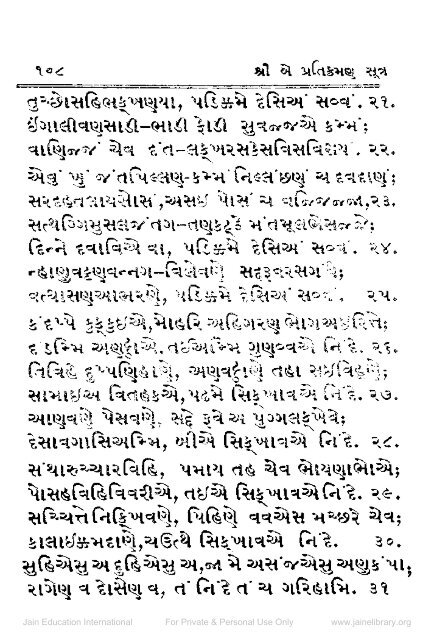 ૧૦૮ શ્રી બે પ્રતિક્રમણ સૂત્ર
તુચ્છોસહિભક્ખણયા, પડિક્કમે દેસિઅં સવ્વં. ૨૧.
ઈંગાલીવણસાડી–ભાડી ફોડી સુવજ્જએ કમ્મં;
વાણિજ્જં ચેવ દંત-લક્ખરસકેસવિસવિસયં. ૨૨.
એવં ખુ જંતપિલ્લણ-કમ્મં નિલ્લંછણં ચ દવદાણં;
સરદહતલાયસોસં, અસઈ પોસં ચ વજ્જિજ્જા,૨૩.
સત્થગ્ગિમુસલજંતગ-તણકટ્ઠે મંતમૂલભેસજ્જે;
દિન્ને દવાવિએ વા, પડિક્કમે દેસિઅં સવ્વં. ૨૪.
ન્હાણુવટ્ટણવન્નગ-વિલેવણે સદ્દરૂવરસગંધે;
વત્થાસણઆભરણે, પડિક્કમે દેસિઅં સવ્વં. ૨૫.
કંદપ્પે કુક્કુઇએ,મોહરિ અહિગરણ ભોગઅઇરિત્તે;
દંડમ્મિ અણટ્ઠાએ, તઇઅમ્મિ ગુણવ્વએ નિંદે. ૨૬.
તિવિહે દુપ્પણિહાણે, અણવટ્ઠાણે તહા સઇવિહૂણે;
સામાઇઅ વિતહકએ,પઢમે સિક્ખાવએ નિંદે. ૨૭.
આણવણે પેસવણે, સદ્દે રૂવે અ પુગ્ગલક્ખેવે;
દેસાવગાસિઅમ્મિ, બીએ સિક્ખાવએ નિંદે. ૨૮.
સંથારુચ્ચારવિહિ, પમાય તહ ચેવ ભોયણાભોએ;
પોસહવિહિવિવરીએ, તઇએ સિક્ખાવએ નિંદે. ૨૯.
સચ્ચિત્તે નિક્ખિવણે, પિહિણે વવએસ મચ્છરે ચેવ;
કાલાઈક્કમદાણે,ચઉત્થે સિક્ખાવએ નિંદે. ૩૦.
સુહિએસુ અ દુહિએસુ અ,જા મે અસંજએસુ અણુકંપા;
રાગેણ વ દોસેણ વ, તં નિંદે તં ચ ગરિહામિ. ૩૧
Jain Education International For Private & Personal Use Only www.jainelibrary.org